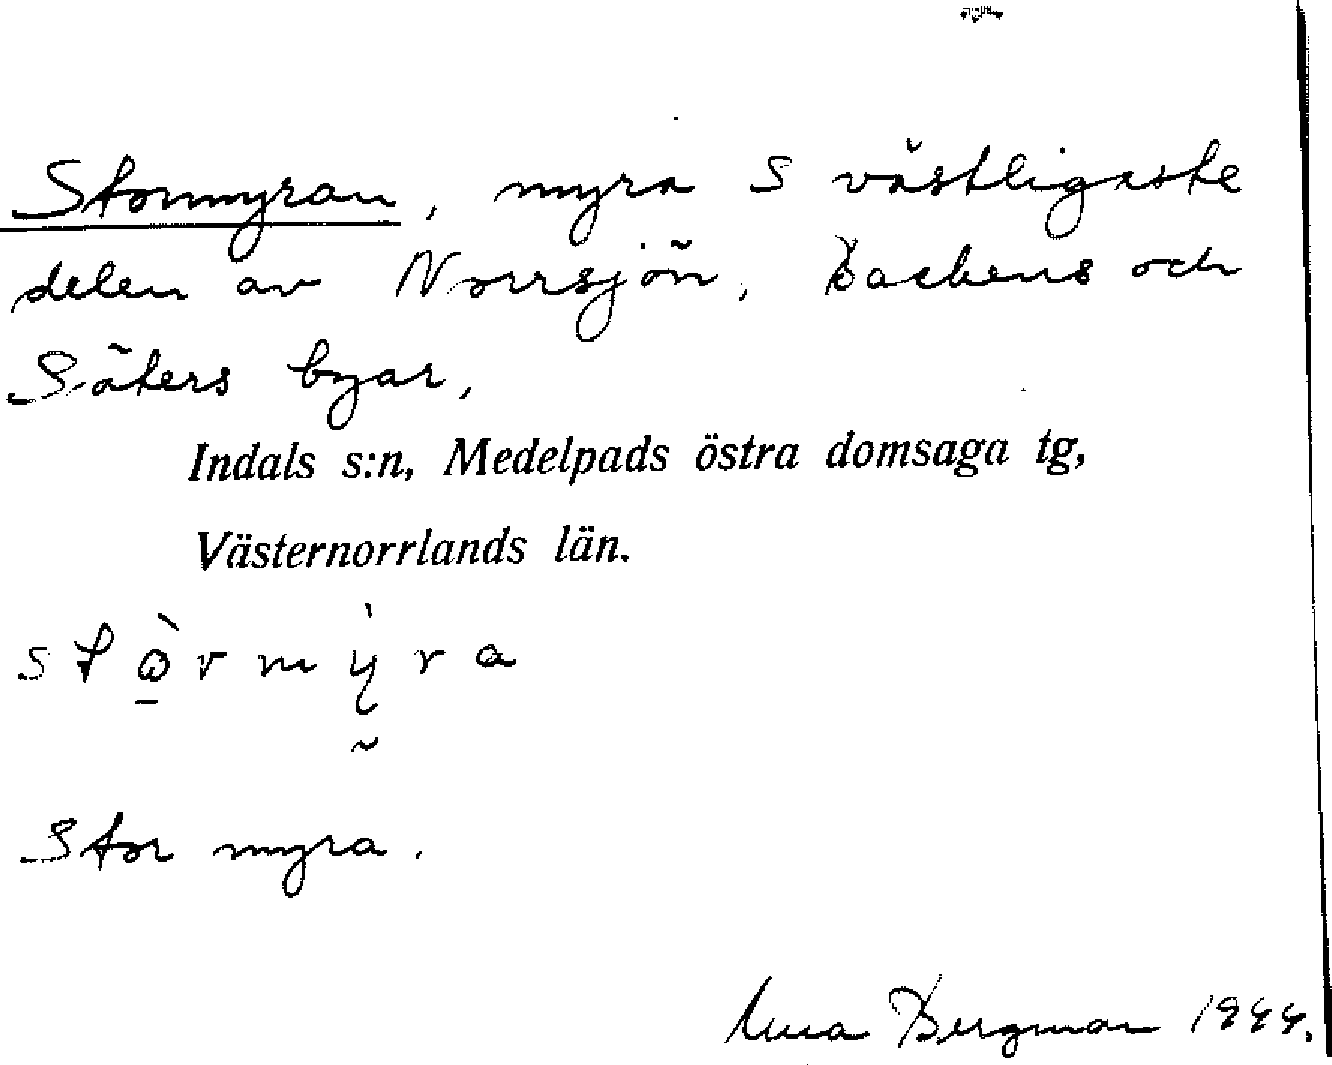 Stormyran, myra S västligaste
delen av Norrsjön, Backens och
Säters byar,
Indals s:n, Medelpads östra domsaga tg,
Västernorrlands län.
Stor myra.
Anna Bergman 1944.